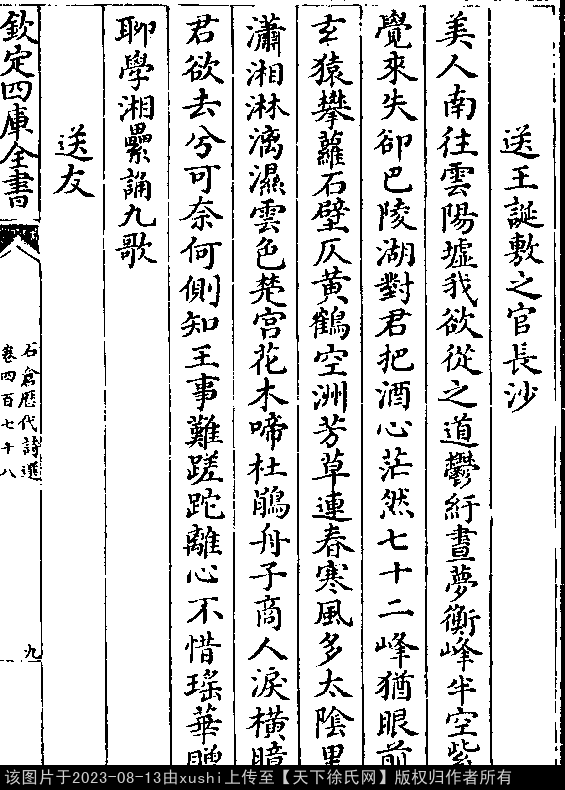 送王誕敷之官長沙
美人南往雲陽墟我欲從之道鬱紆晝夢衡峰半空紫
覺來失卻巴陵湖對君把酒心茫然七十二峰猶眼前
玄猿攀蘿石壁仄黄鶴空洲芳草連春寒風多太陰黒
瀟湘淋漓濕雲色楚宮花木啼杜鵑舟子商人淚橫臆
君欲去兮可奈何側知王事難蹉跎離心不惜瑤華贈
聊學湘纍誦九歌
送友
欽定四庫全書
石倉歴代詩選
卷四百七十八
九
该图片于2023-08-13由xushi上传至【天下徐氏网】版权归作者所有